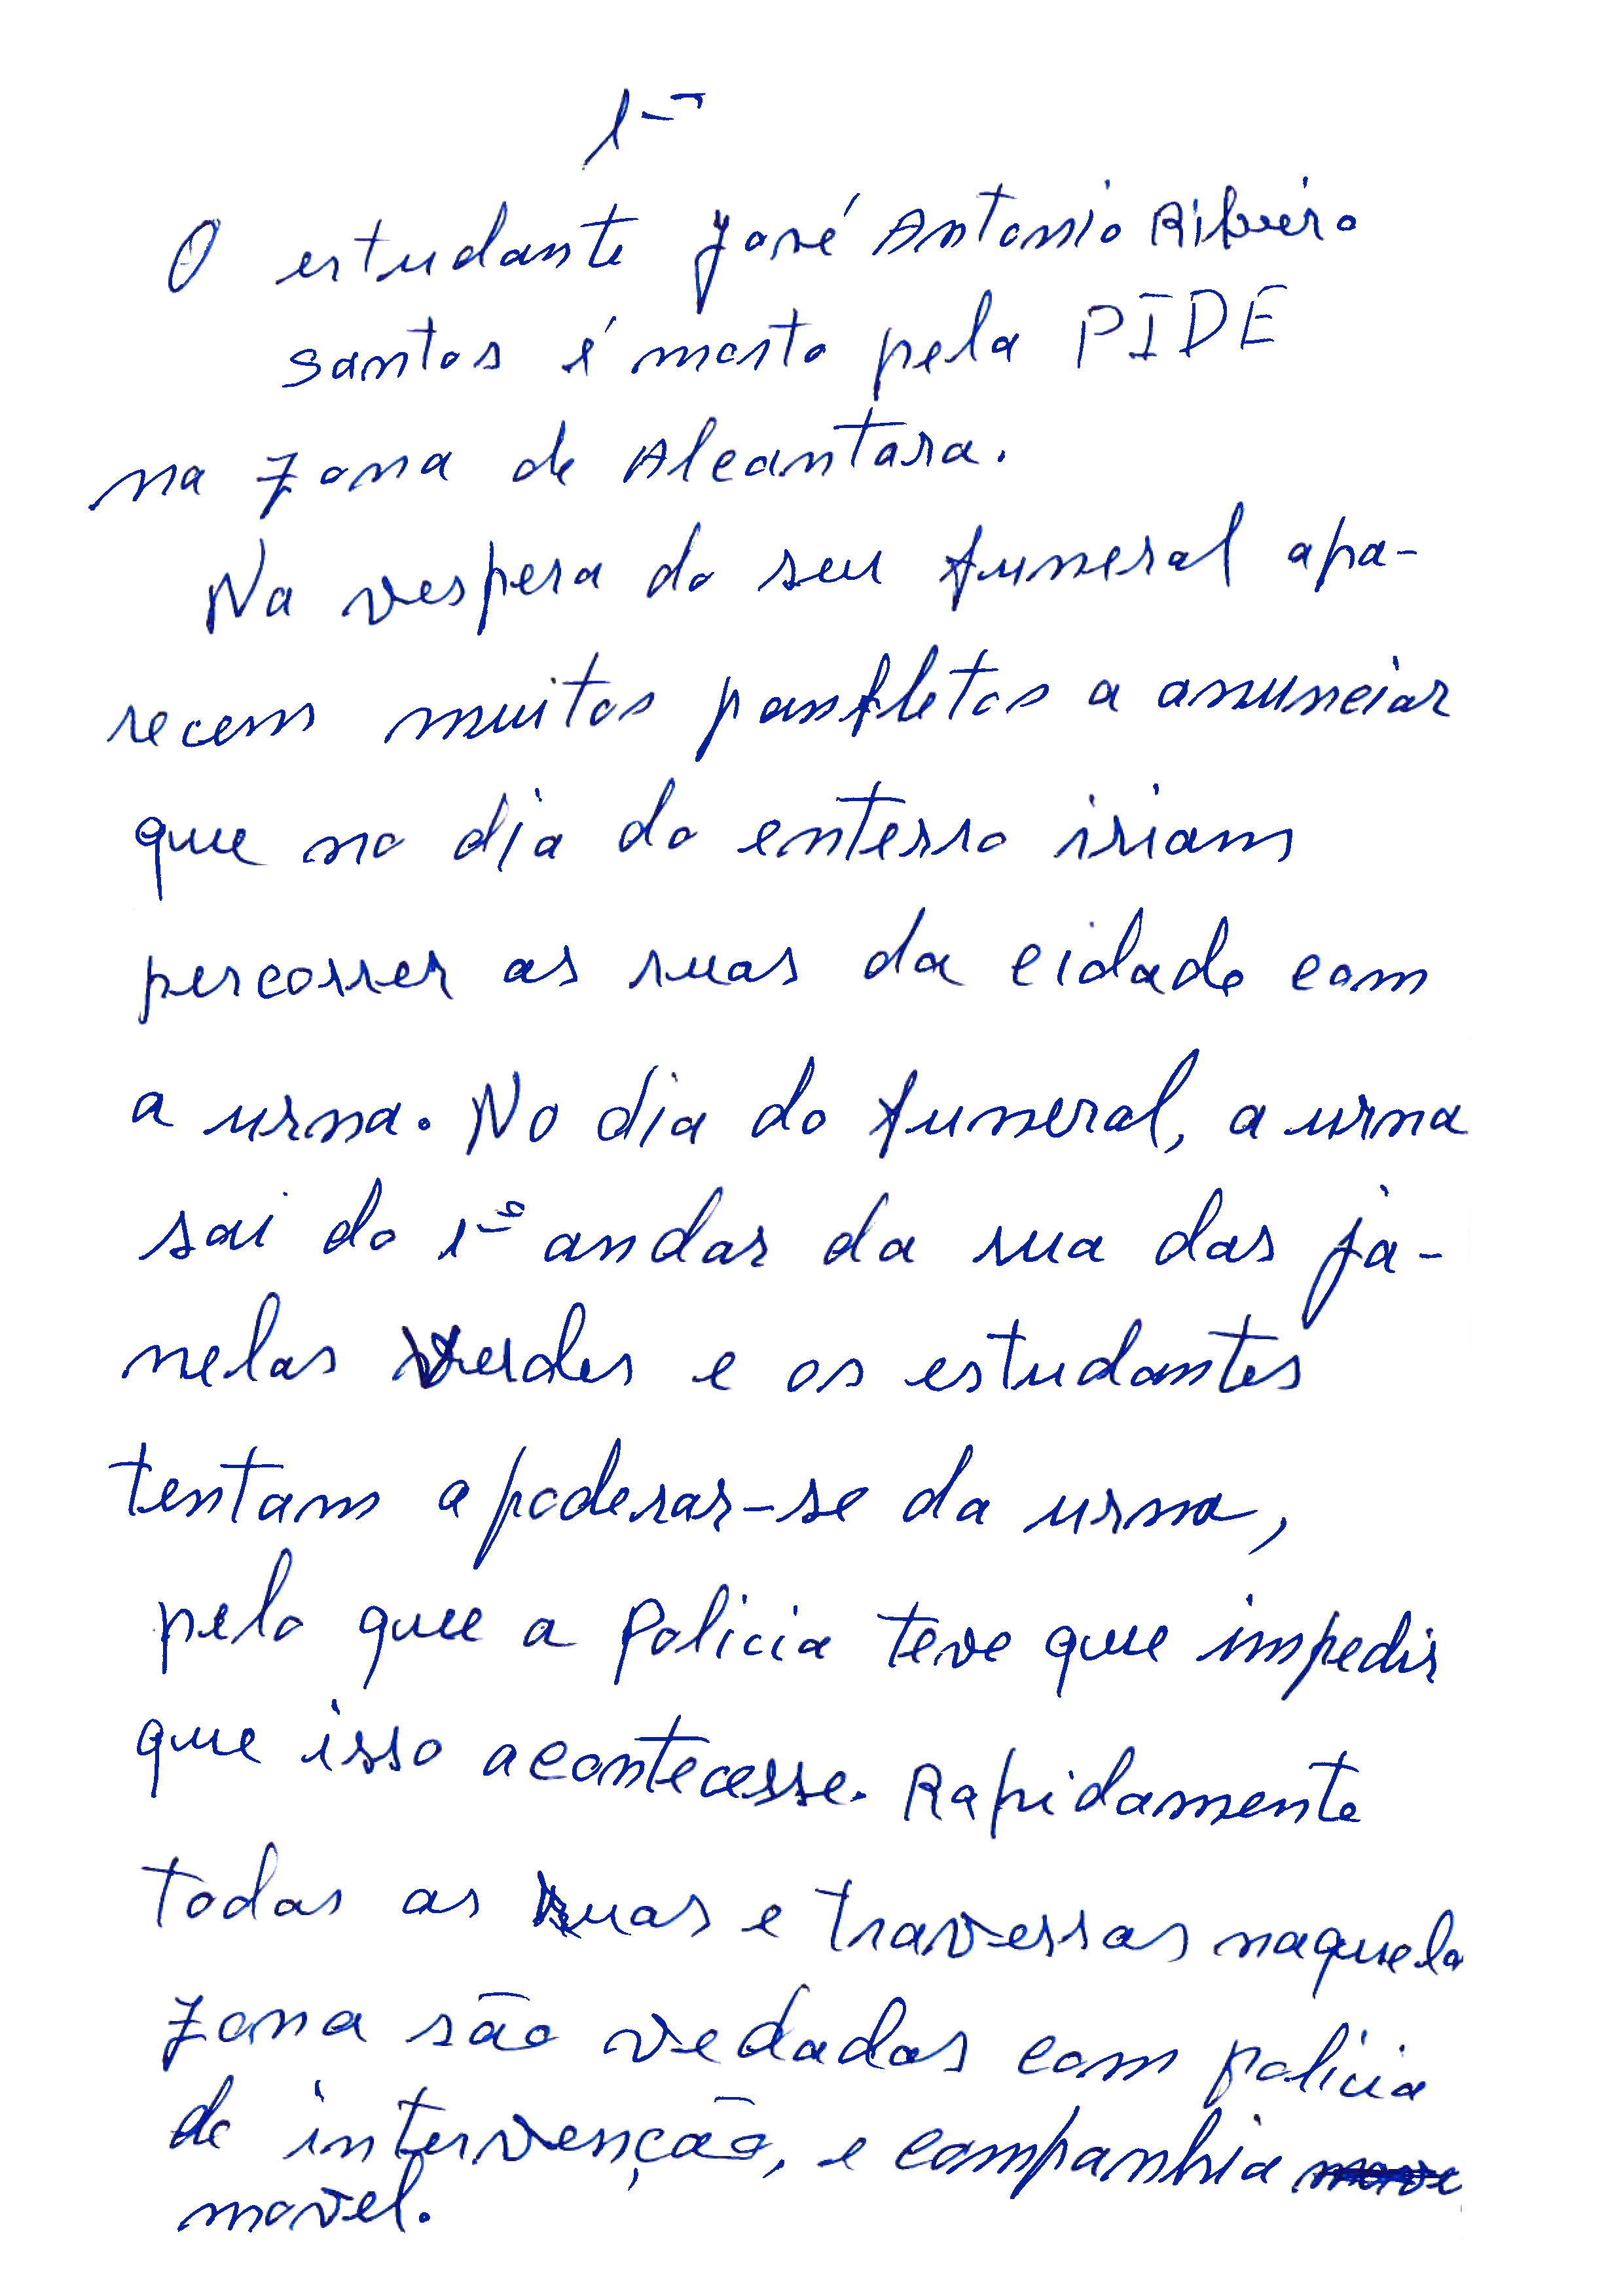 1-
O estudante José Antonio Ribeiro
Santos é morto pela PIDE
na zona de Alcantara.
Na vespera do seu funeral apa-
recem muitos panfletos a anunciar
que no dia do enterro iriam
percorrer as ruas da cidade com
a urna. No dia do funeral, a urna
sai do 1º andar da rua das ja-
nelas verdes e os estudantes
tentam apoderar-se da urna,
pelo que a Policia teve que impedir
que isso acontecesse. Rapidamente
todas as ruas e travessas naquela
zona são vedadas com policia
de intervenção, e companhia
movel.